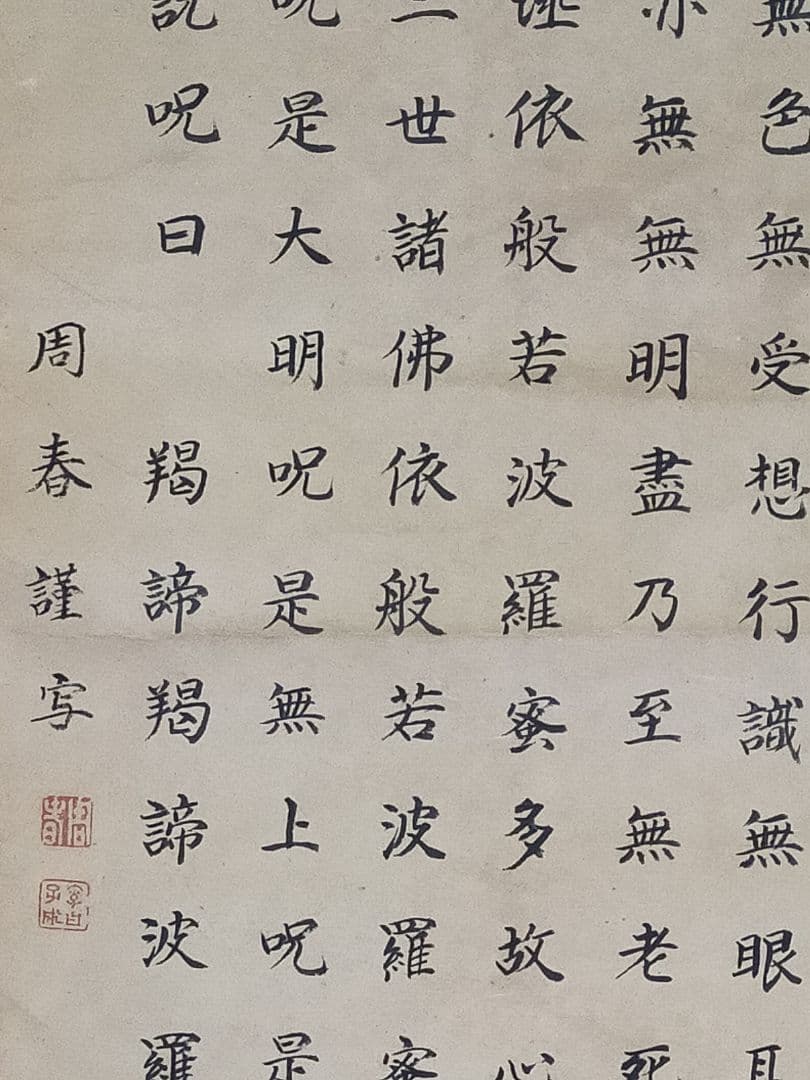 無色無受想行識無眼耳
亦無無明盡乃至無老死
埵依般若波羅蜜多故心
三世諸佛依般若波羅蜜
呪是大明呪是無上呪是
説呪曰　羯諦羯諦波羅
周春謹写
周春